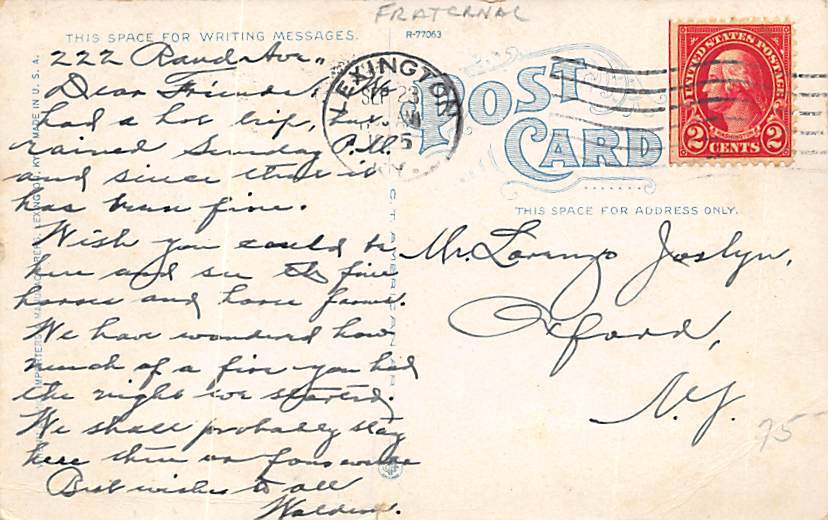 FRATERNAL
THIS SPACE FOR WRITING MESSAGES.
R-77063
222 Rand Ave.,
Dear Friends,
had a hot trip, but
rained Sunday P.M.
and since then it
has been fine.
Wish you could be
here and see the fine
horses and horse farms.
We have wondered how
much of a fire you had
the night we started.
We shall probably stay
here three or four weeks
Best wishes to all
Walden.
MADE IN U. S. A.
LEXINGTON, KY.
C. T. AMERICAN
LEXINGTON
SEP 23
KY.
POST
CARD
THIS SPACE FOR ADDRESS ONLY.
UNITED STATES POSTAGE
WASHINGTON
2 CENTS 2
Mr. Lorenzo Joslyn,
Oxford,
N.Y.
75